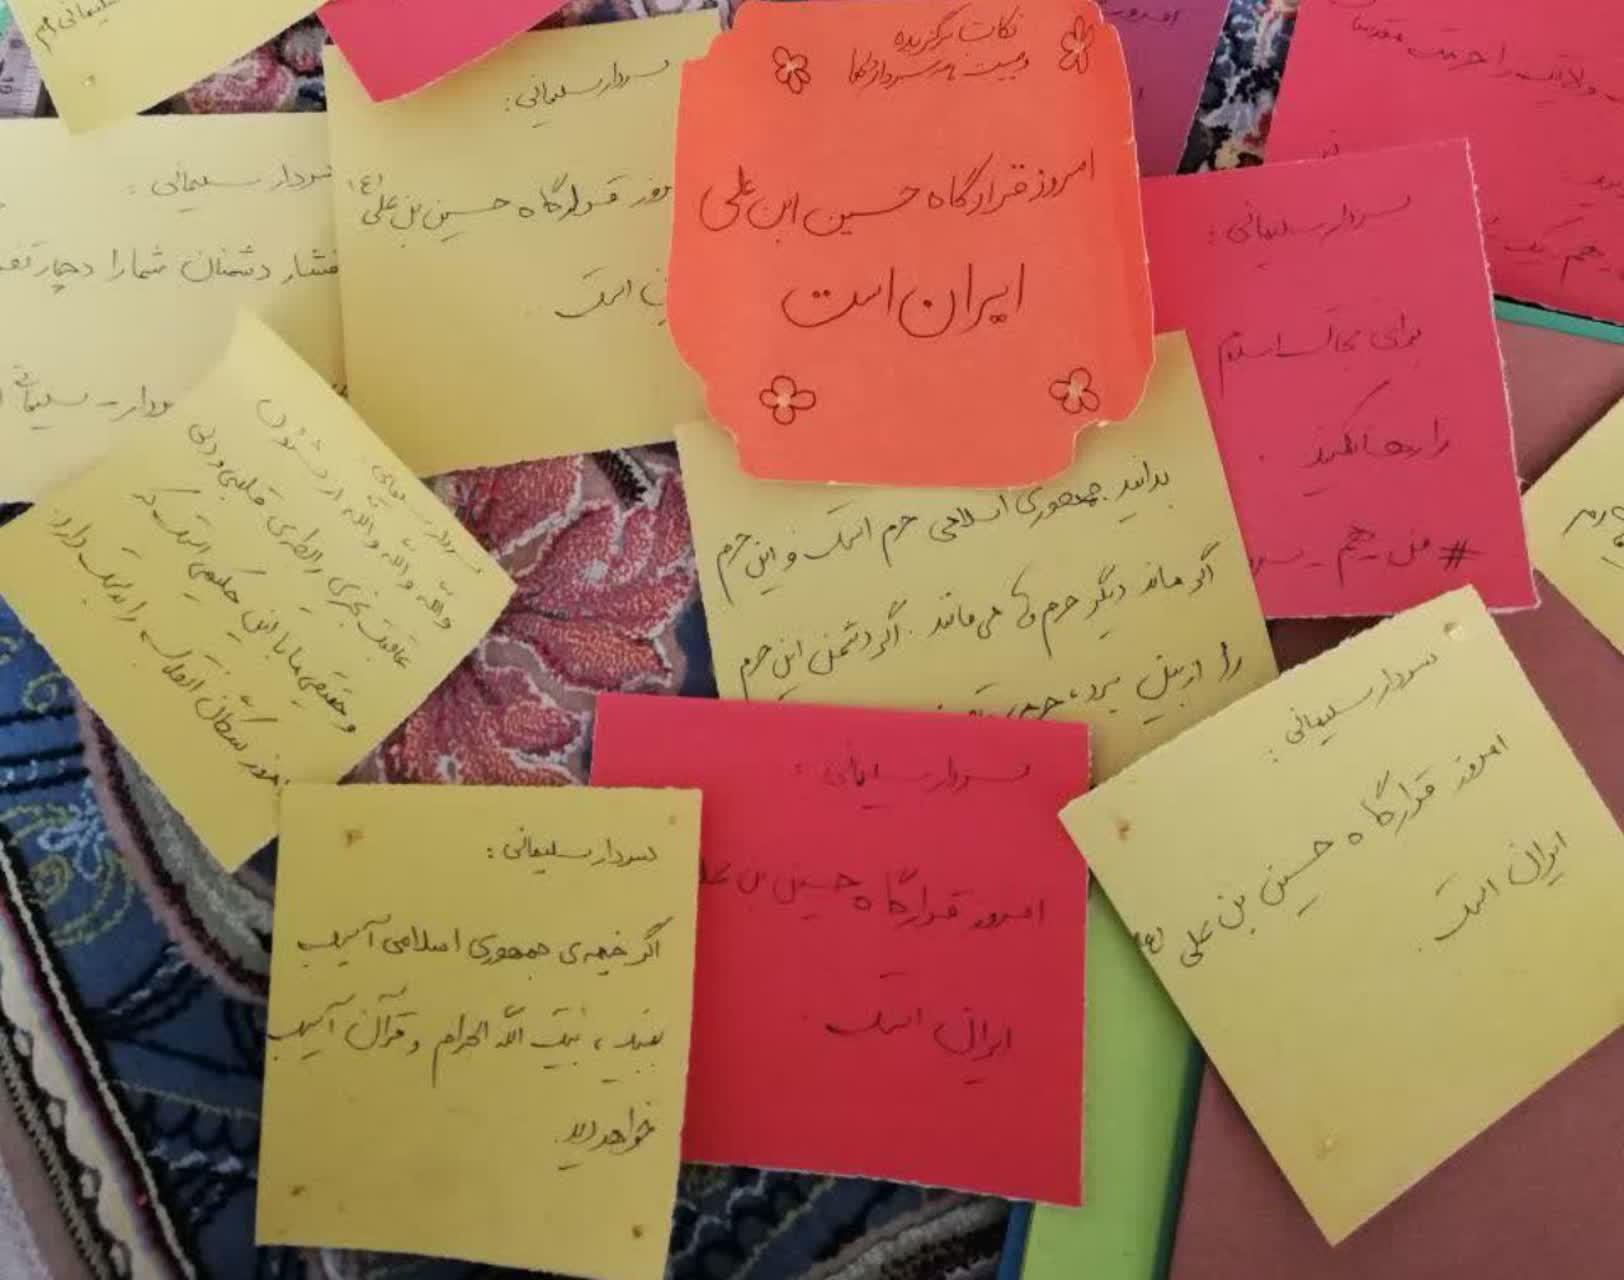 سلیمانی
نکات برگزیده
وصیت نامه سردار دلها
امروز قرارگاه حسین ابن علی
ایران است
سردار سلیمانی:
قرارگاه حسین بن علی (ع)
است.
سردار سلیمانی:
فشار دشمنان شما را دچار
سلیمانی
ولایت را حرمت مقدسات
سردار سلیمانی:
برای نجات اسلام
را رها نکنید.
# من_هم
سلیمانی:
والله والله والله از شئون
عاقبت بخیری رابطه‌ی قلبی و دلی
و حقیقی ما با این حکیمی است که
امروز سکان انقلاب را به دست دارد.
بدانید جمهوری اسلامی حرم است و این حرم
اگر ماند دیگر حرم ها می مانند. اگر دشمن این حرم
را از بین برد،
سردار سلیمانی:
امروز قرارگاه حسین بن علی (ع)
ایران است.
سردار سلیمانی:
امروز قرارگاه حسین بن
ایران است.
سردار سلیمانی:
اگر خیمه‌ی جمهوری اسلامی آسیب
ببیند، بیت الله الحرام و قرآن آسیب
خواهد دید.